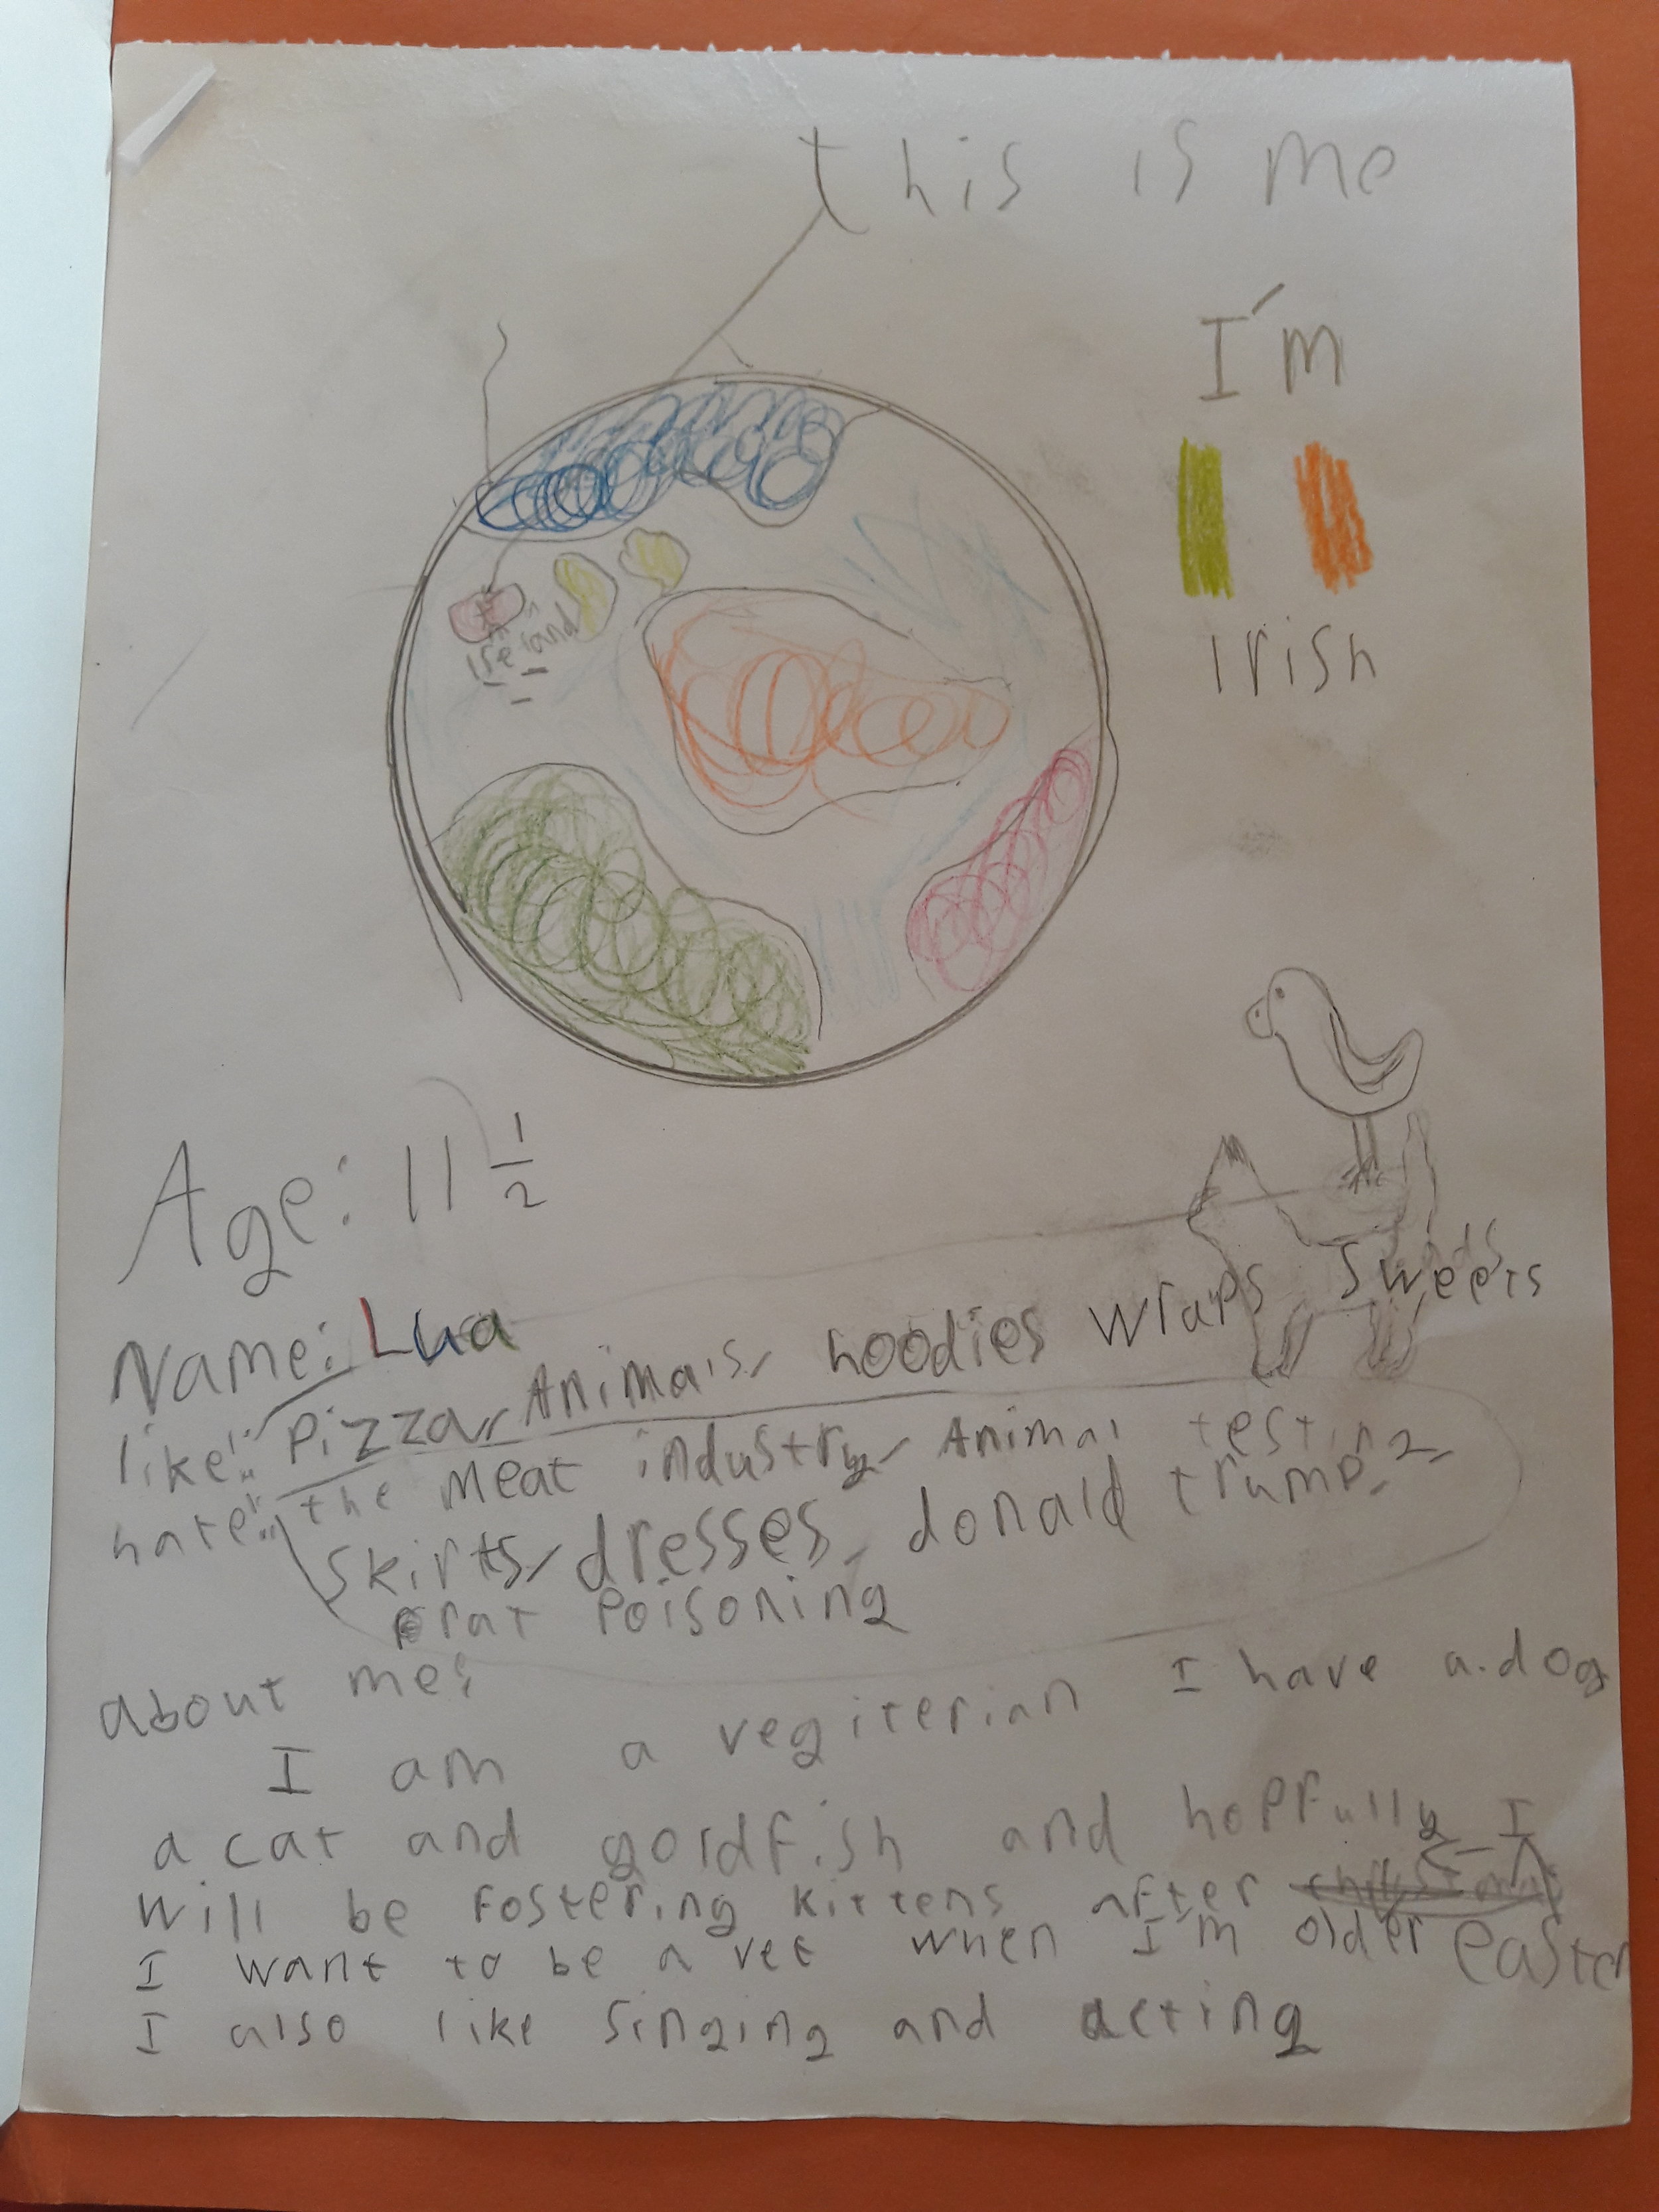 this is me
I'm
Irish
Ireland
Age: 11 1/2
Name: Lua
like: Pizza, Animals, hoodies wraps Sweets
hate: the meat industry, Animal testing,
Skirts, dresses, donald trump,
rat poisoning
about me:
I am a vegiterian I have a dog
a cat and goldfish and hopfully I
will be fostering kittens after easter
I want to be a vet when I'm older
I also like singing and acting